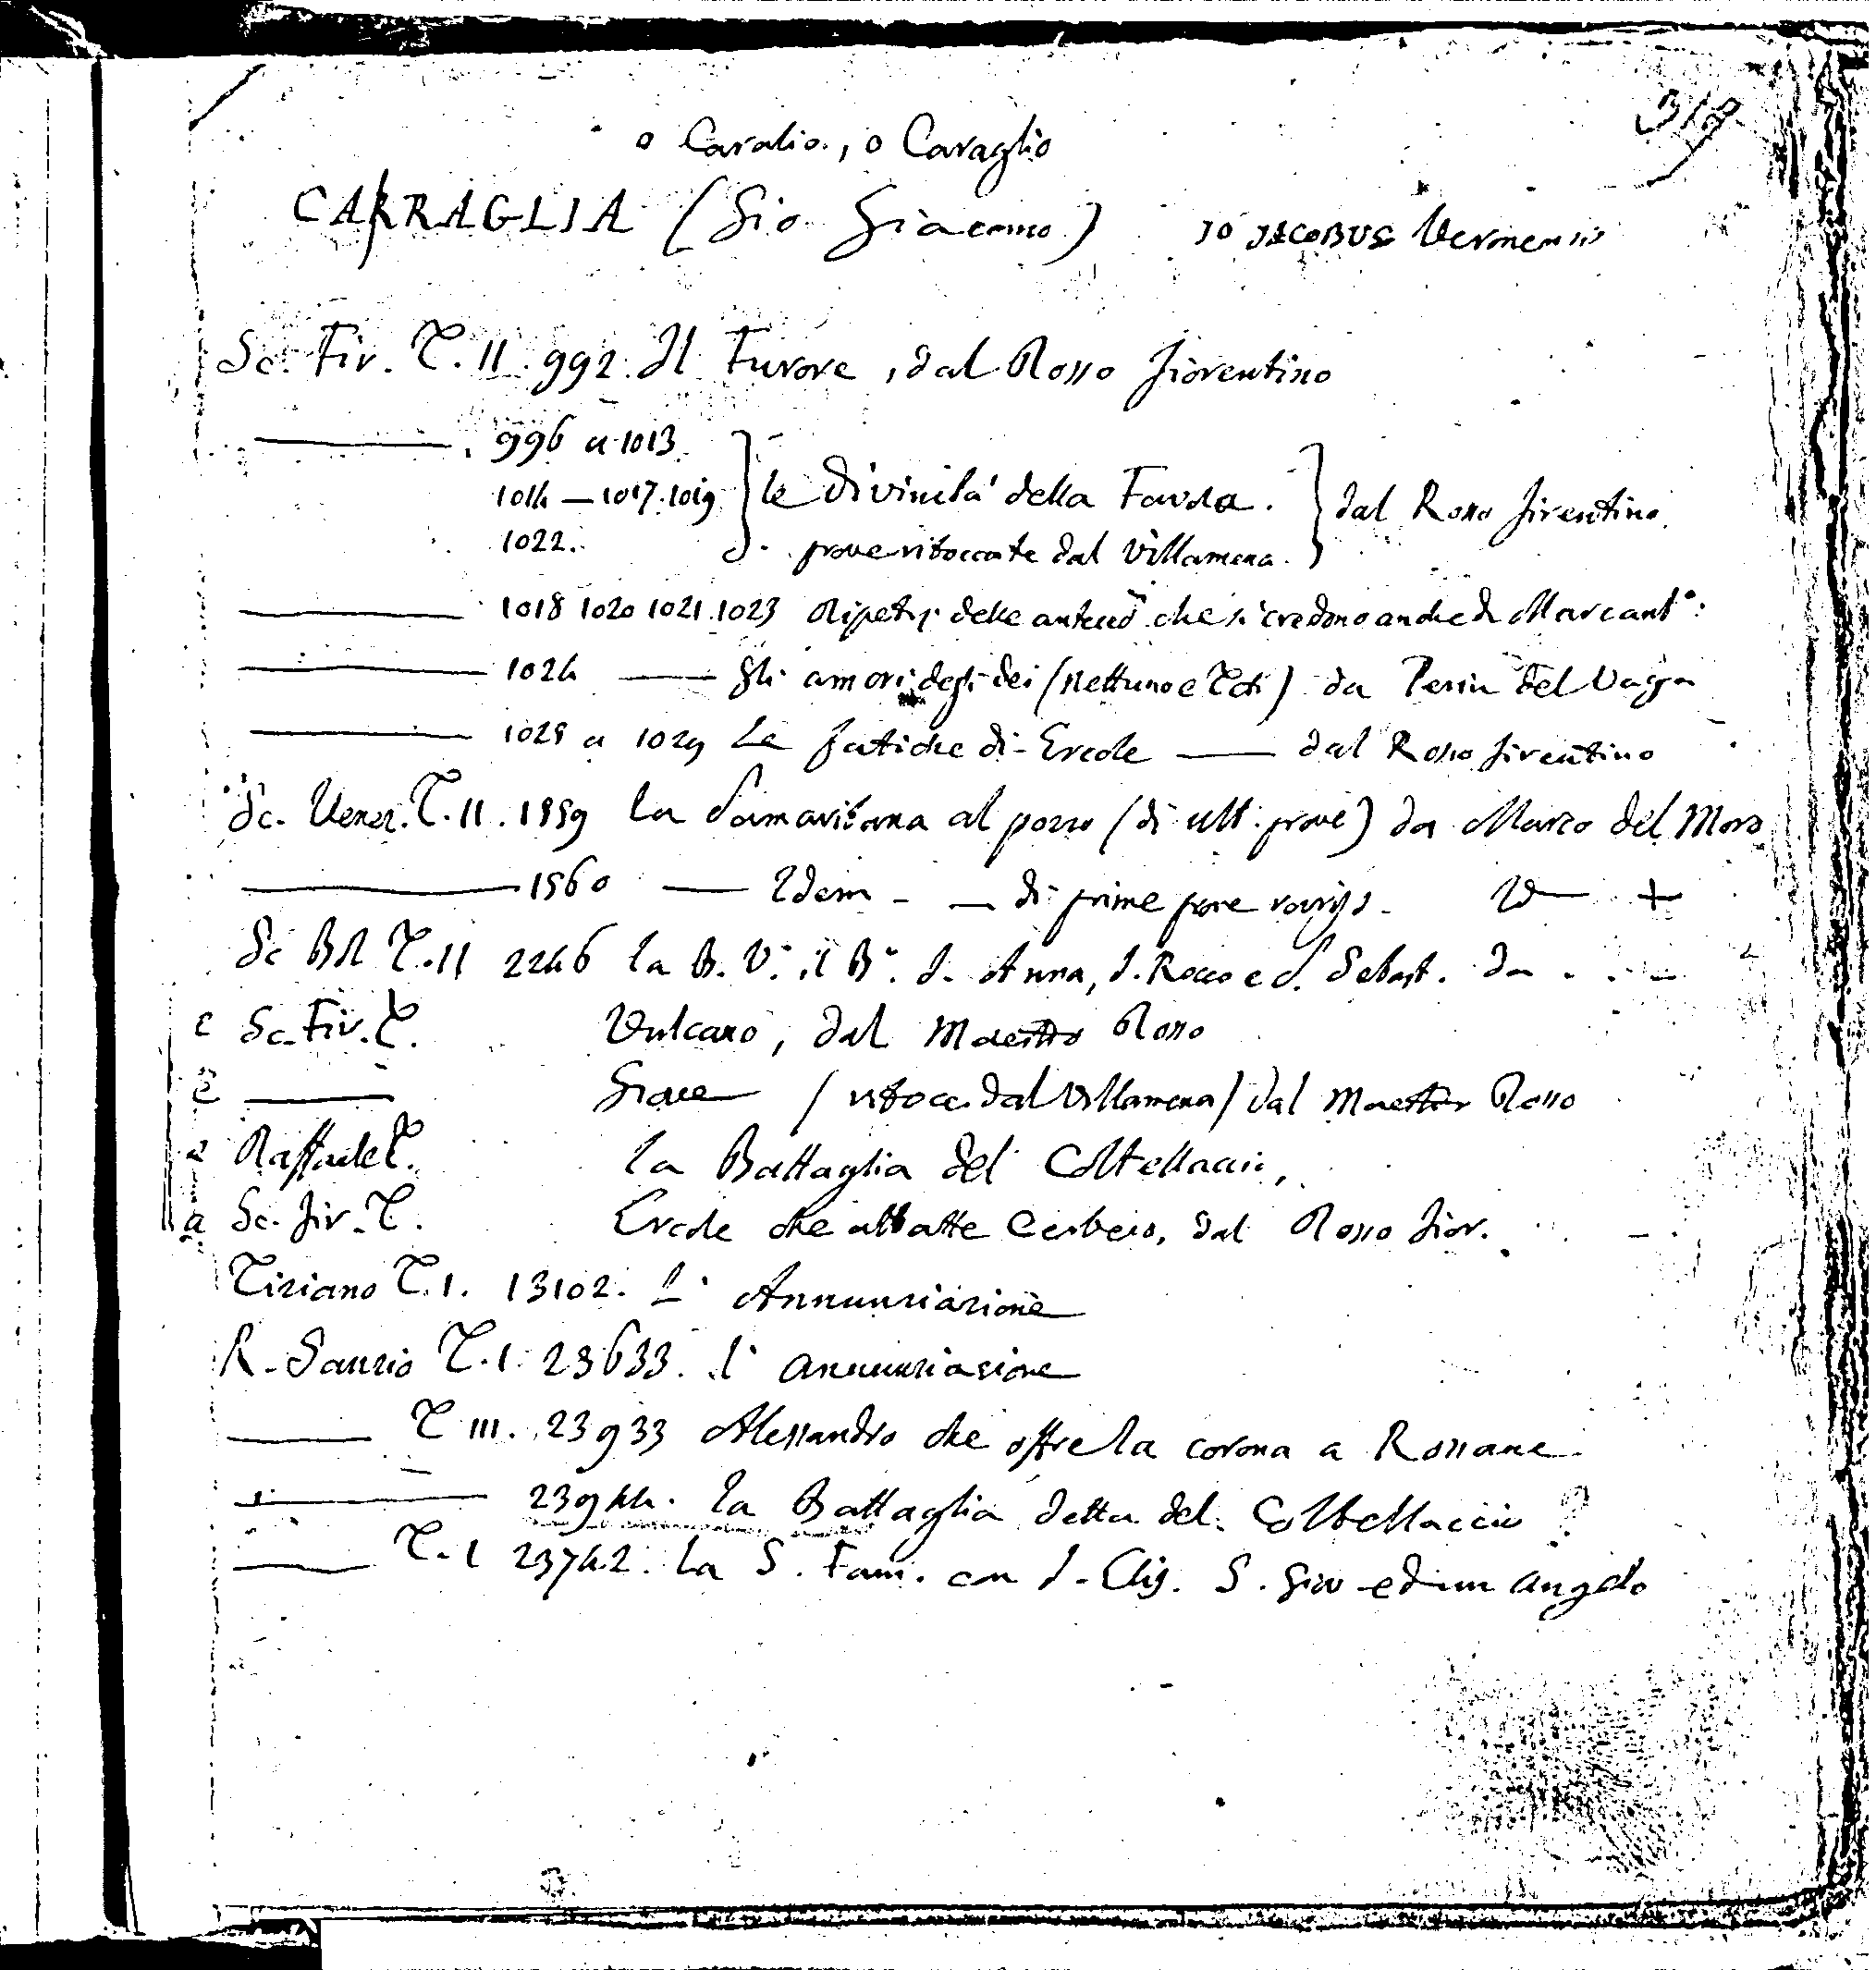 319
o Caralio., o Caraglio
CARRAGLIA (Gio Giacomo) JO JACOBUS Veronensis
Sc. Fir. T. II. 992. Il Furore, dal Rosso fiorentino
———. 996 a 1013
1014 — 1017. 1019 } le Divinità della Favola. } dal Rosso firentino.
1022. d. prove ritoccate dal Villamena.
——— 1018 1020 1021. 1023 Ripetiz. delle anteced che si credono anche di Marcant°:
——— 1024 —— gli amori degli dei (Nettuno e Teti) da Perin del Vaga
——— 1025 a 1029 Le fatiche di Ercole —— dal Rosso firentino
Sc. Venez. T. II. 1559 la Samaritana al pozzo (di ult. prove) da Marco del Moro
——— 1560 —— Idem - — di prime prove Id— +
Sc Bol T. II 2246 la B. V. il B°. S. Anna, S. Rocco e S. Sebast. da . . .
Sc. Fir. T. Vulcano, dal Maestro Rosso
——— (ritocc. dal Villamena) dal Maestro Rosso
Raffaele T. la Battaglia del Coltellaccio,
a Sc. fir. T. Ercole che abbatte Cerbero, dal Rosso fior.
Tiziano T. I. 13102. L' Annunziazione
R. Sanzio T. I. 23633. l' annunziazione
——— T III. 23933 Alessandro che offre la corona a Rossane
——— 23944. la Battaglia detta del Coltellaccio ?
——— T. I 23742. la S. Fam. con S. Elis. S. Giov ed un angelo